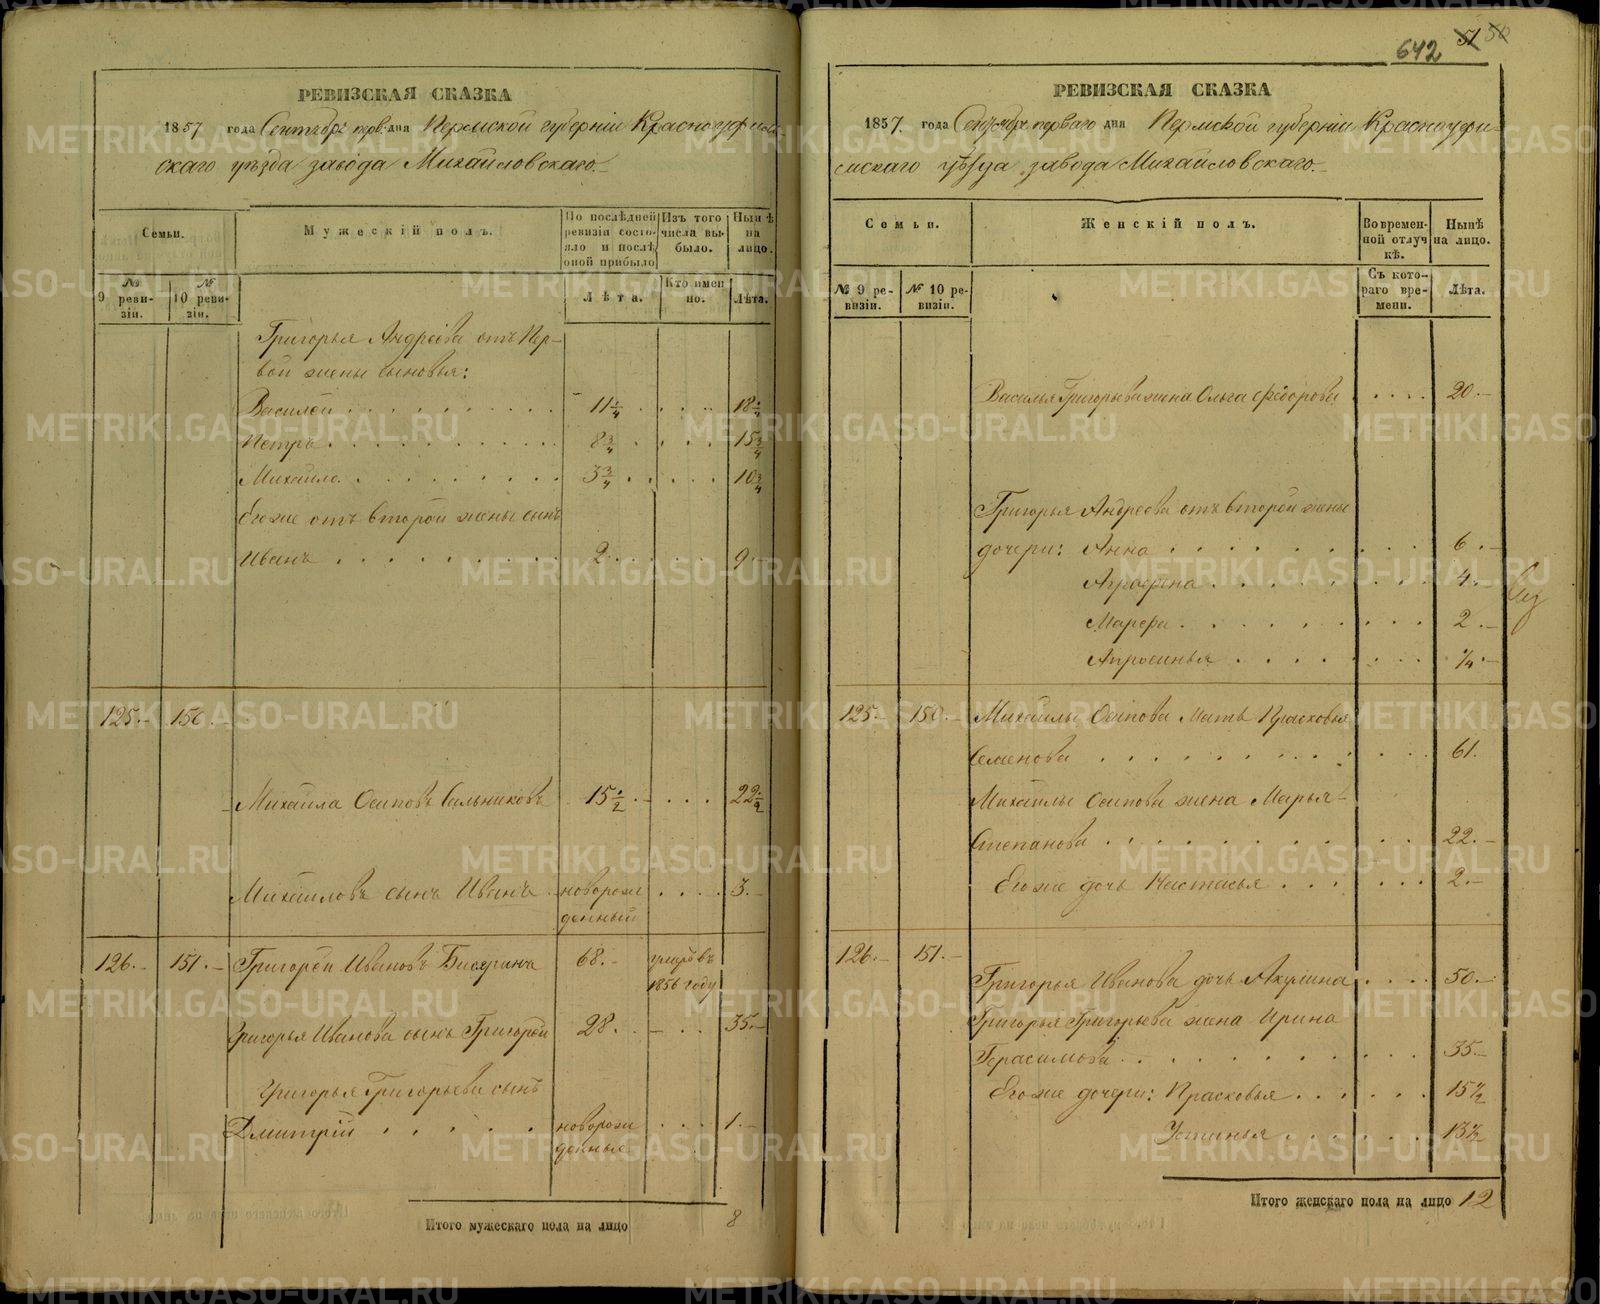 РЕВИЗСКАЯ СКАЗКА
1857 года Сентября перв. дня Пермской губернiи Красноуфим-
скаго уѣзда завода Михайловскаго.
Семьи.
Мужескiй полъ.
По послѣдней ревизiи состояло и послѣ оной прибыло
Изъ того числа выбыло.
Нынѣ на лицо.
№ 9 ревизiи.
№ 10 ревизiи.
Лѣта.
Кто именно.
Лѣта.
Григорья Андреева отъ пер-
вой жены сыновья:
Василей 11 1/4 18 1/4
Петръ 8 3/4 15 3/4
Михайло 3 3/4 10 3/4
Его же отъ второй жены сынъ
Иванъ 2 9
125. 150.
Михайла Осиповъ Сальниковъ 15 1/2 22 1/2
Михайловъ сынъ Иванъ новорож 3.
денный
126. 151. Григорей Ивановъ 68. умеръ въ
1856 году
Григорья Иванова сынъ Григорей 28. 35.
Григорья Григорьева сынъ
Дмитрiй новорож 1.
денные
Итого мужескаго пола на лицо 8
642 51 50
РЕВИЗСКАЯ СКАЗКА
1857. года Сентября перваго дня Пермской губернiи Красноуфи-
мскаго уѣзда завода Михайловскаго.
Семьи.
Женскiй полъ.
Во временной отлучкѣ.
Нынѣ на лицо.
№ 9 ревизiи.
№ 10 ревизiи.
Съ котораго времени.
Лѣта.
Василья Григорьева жена Ольга Федорова 20.
Григорья Андреева отъ второй жены
дочери: Анна 6.
Аграфена 4.
Марфа 2.
Апросинья 1/4.
125. 150. Михайлы Осипова Мать Прасковья
Семенова 61.
Михайлы Осипова жена Марья
Степанова 22.
Его же дочь Настасья 2.
126. 151.
Григорья Иванова дочь Акулина 50.
Григорья Григорьева жена Ирина
Герасимова 35.
Его же дочери: Прасковья 15 1/2
Устинья 13 1/2
Итого женскаго пола на лицо 12
METRIKI.GASO-URAL.RU